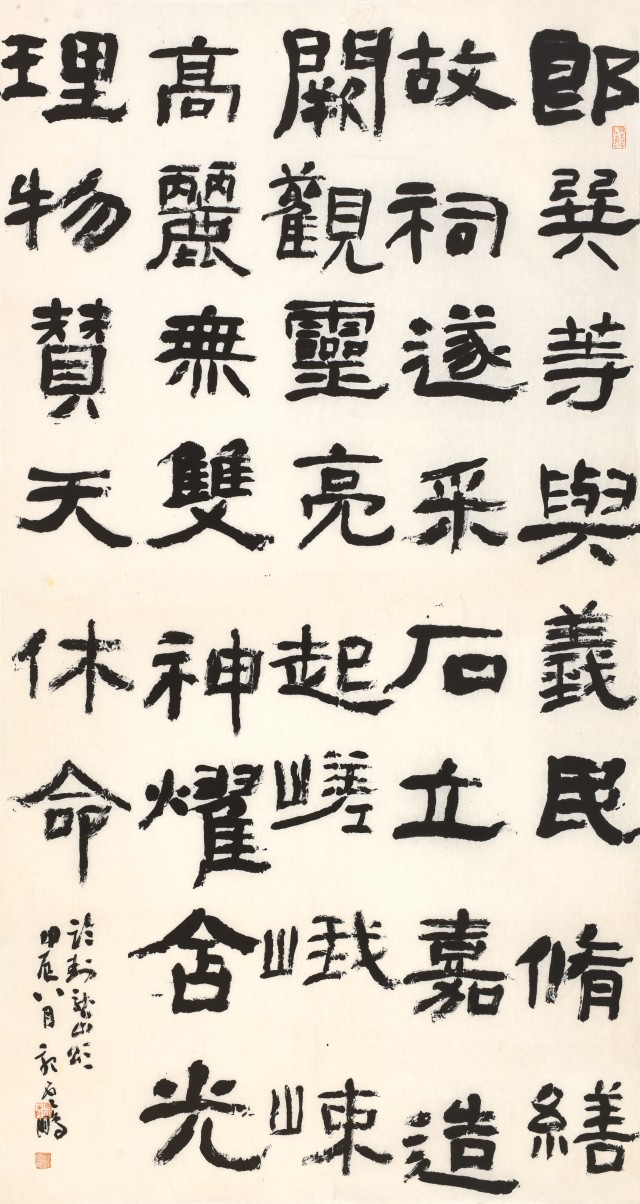 郎巽等與義民脩繕
故祠遂采石立嘉造
闕觀靈亮起嵯峨
高麗無雙神燿舍光
理物贊天休命
臨封龍山頌
甲辰八月